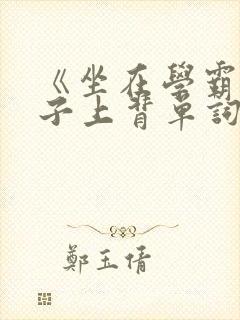 《坐在學霸
子上背單詞
鄭玉倩